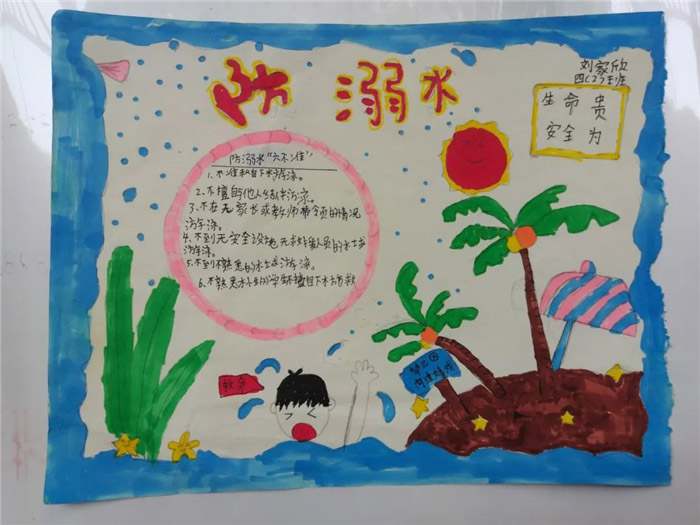 防 溺 水
刘家欣
四(2)班
生命贵
安全为
防溺水"六不准"
1.不准私自下水游泳。
2.不擅 他人结伴游泳。
3.不在无家长或教师带领的情况
游泳。
4.不到无安全设施 无救援人员的水域
游泳。
5.不到不熟悉的水域游泳。
6.不熟悉水性的学生不擅自下水施救
救命